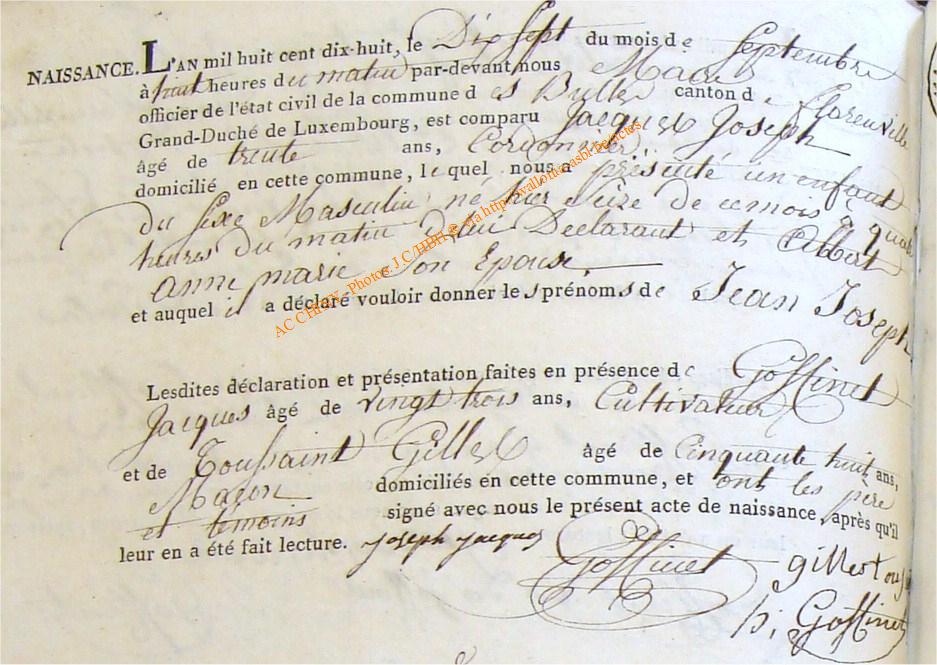 NAISSANCE. L'AN mil huit cent dix-huit, le Dix Sept du mois de Septembre
à huit heures du matin par-devant nous Maire
officier de l'état civil de la commune des Bulles canton de Florenville
Grand-Duché de Luxembourg, est comparu Jacques Joseph
âgé de trente ans, Cordonnier,
domicilié en cette commune, lequel nous a présenté un enfant
du Sexe Masculin né hier Seize de ce mois à quatre
heures du matin de lui Déclarant et Albert
anne marie Son Epouse.
et auquel il a déclaré vouloir donner les prénoms de Jean Joseph
Lesdites déclaration et présentation faites en présence de Goffinet
Jacques âgé de vingt trois ans, Cultivateur
et de Toussaint Gilles âgé de Cinquante huit ans,
Maçon domiciliés en cette commune, et ont les père
et témoins signé avec nous le présent acte de naissance, après qu'il
leur en a été fait lecture. joseph jacques
Goffinet
gilles tousin
h. Goffinet
AC CHINY - Photos J.C/HBH © via http://wallonia.asbl.be/actes